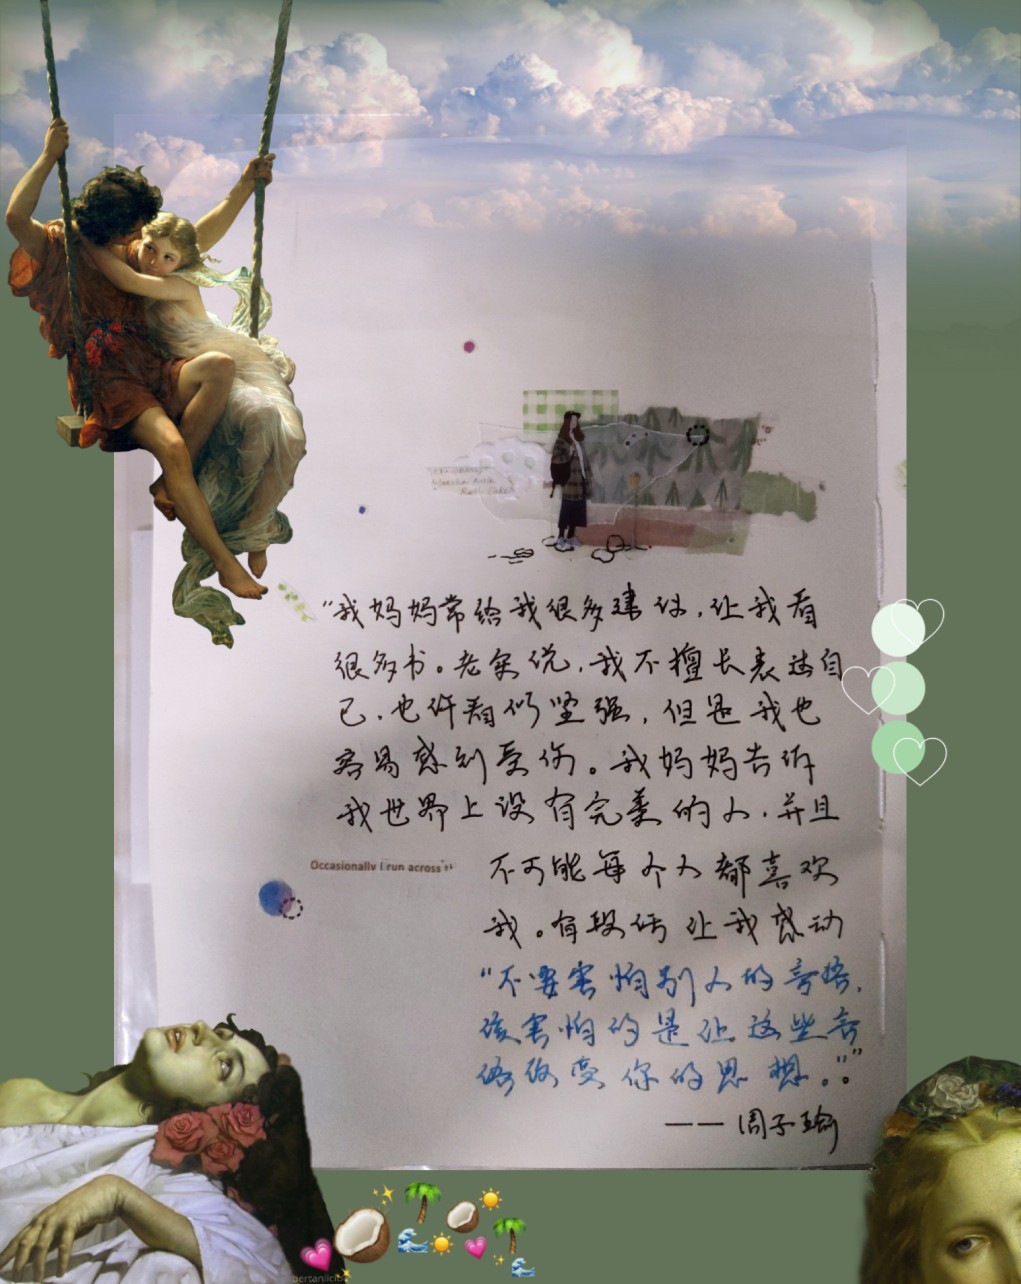 Occasionally I run across
“我妈妈常给我很多建议,让我看
很多书。老实说,我不擅长表达自
己,也许看似坚强,但是我也
容易感到受伤。我妈妈告诉
我世界上没有完美的人,并且
不可能每个人都喜欢
我。有段话让我感动
“不要害怕别人的言语,
该害怕的是让这些言
语改变你的思想。””
——周子瑜